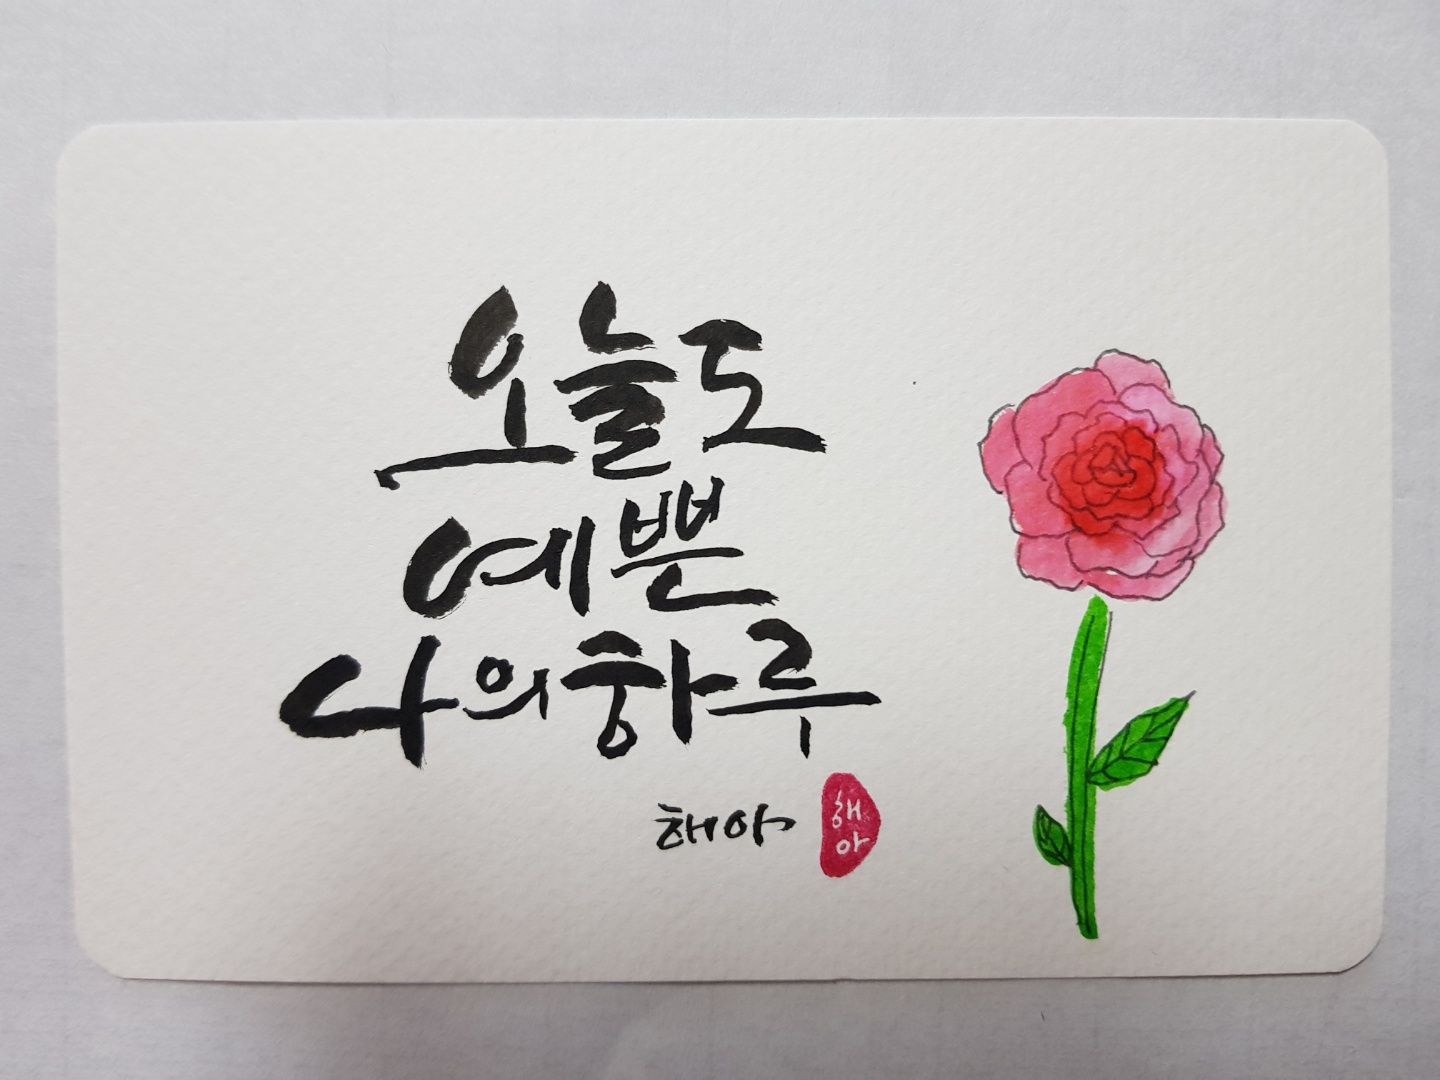 오늘도
예쁜
나의하루
해야
해
야